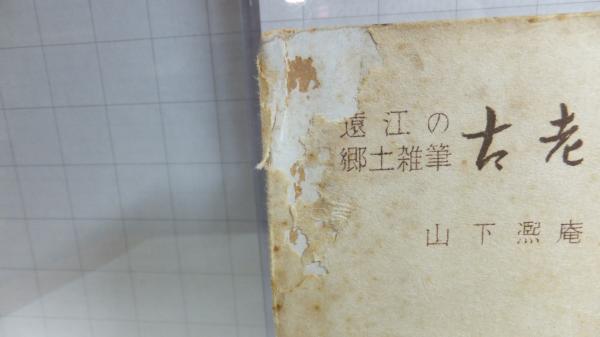 遠江の
郷土雑筆
古老
山下熈庵